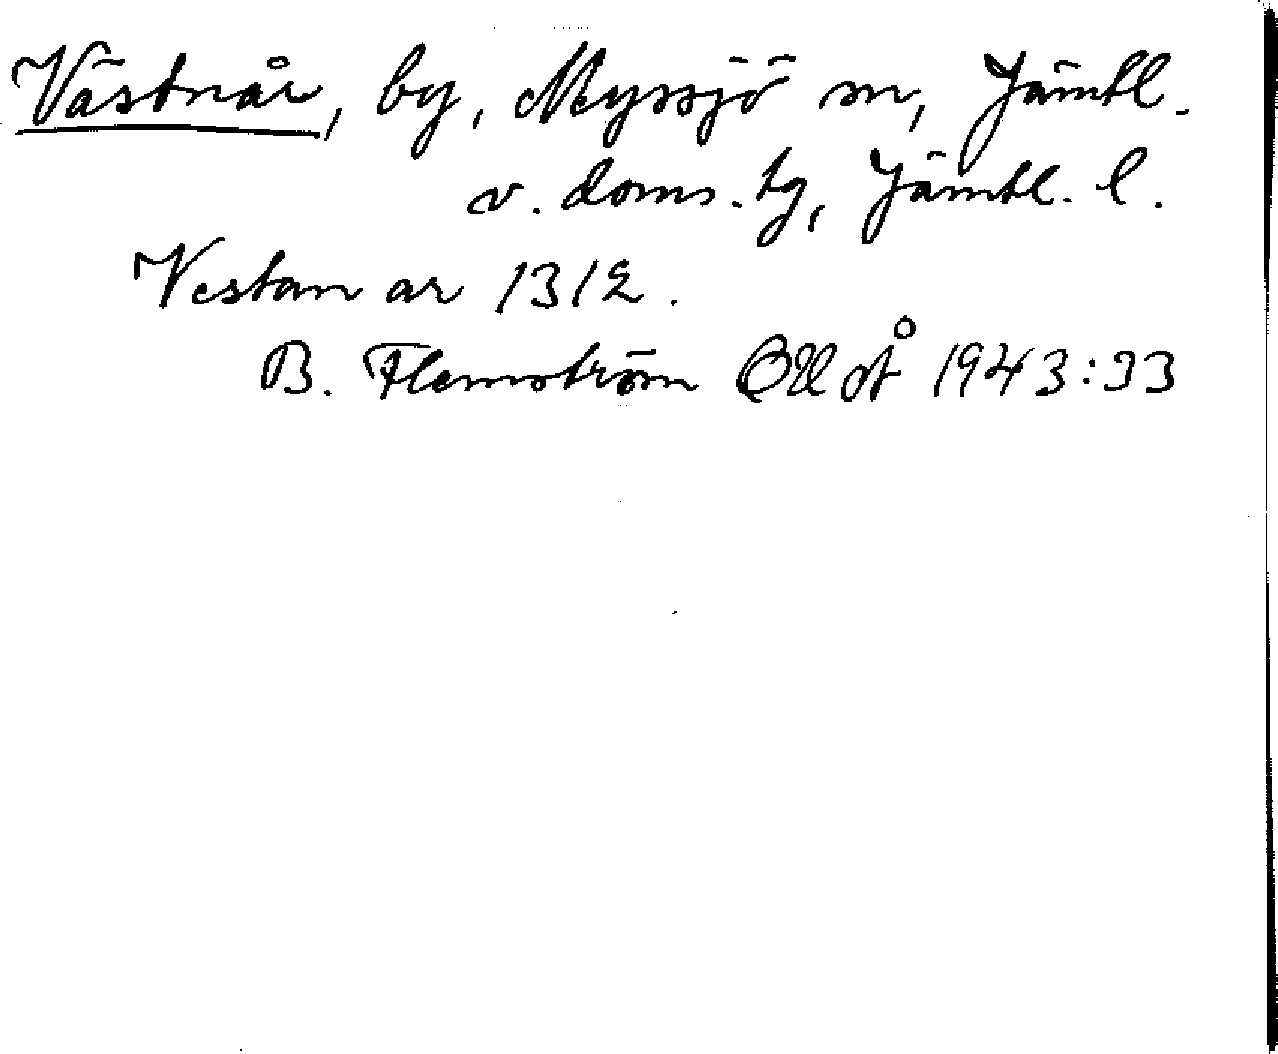 Västnår, by, Myssjö sn, Jämtl.
v. doms. tg, Jämtl. l.
Vestan ar 1312.
B. Flemström OUÅ 1943:33